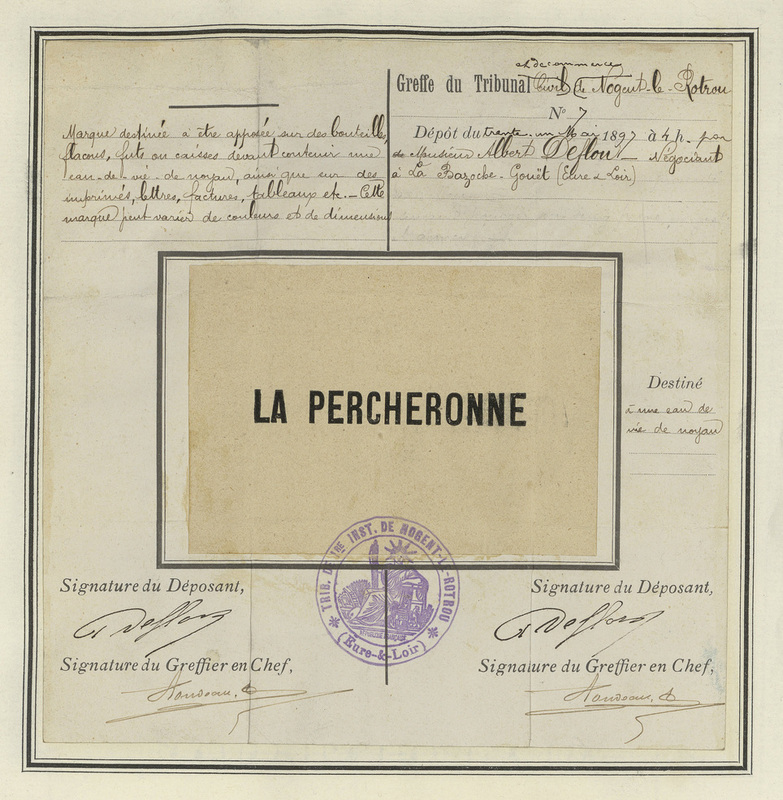 Marque destinée à être apposée sur des bouteilles,
flacons, fûts, ou caisses devant contenir une
eau-de-vie-de noyau, ainsi que sur des
imprimés, lettres, factures, tableaux etc. — Cette
marque peut varier de couleurs et de dimensions
et de commerce
Greffe du Tribunal Civil de Nogent-le-Rotrou
N° 7
Dépôt du trente-un Mai 1897 à 4 h. par
de Monsieur Albert Deflou Négociant
à La Bazoche-Gouët (Eure & Loir)
LA PERCHERONNE
Destiné
à une eau de
vie de noyau
TRIB. DE 1RE INST. DE NOGENT-LE-ROTROU
(Eure-&-Loir)
Signature du Déposant,
Signature du Déposant,
Signature du Greffier en Chef,
Signature du Greffier en Chef,